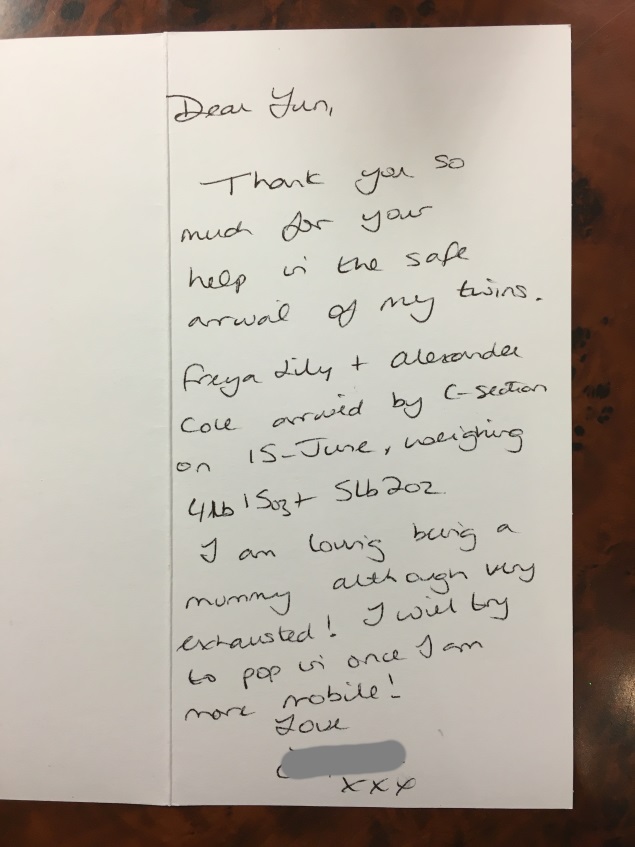 Dear Yun,
Thank you so
much for your
help in the safe
arrival of my twins.
Freya Lily + Alexander
Cole arrived by C-section
on 15-June, weighing
4lb 15oz + 5lb 2oz
I am loving being a
mummy although very
exhausted! I will try
to pop in once I am
more mobile!
Love
xxx